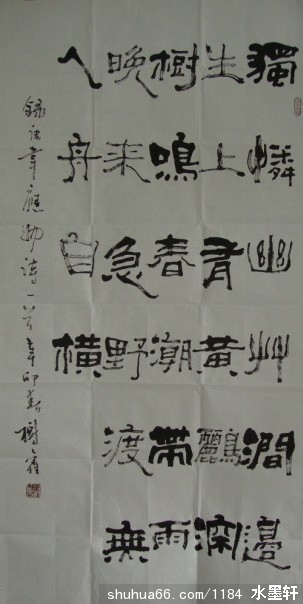 獨憐幽艸澗邊
生上有黃鸝深
樹鳴春潮帶雨
晚来急野渡無
人舟自橫
録唐韋應物詩一首辛卯春樹
shuhua66.com/1184 水墨轩